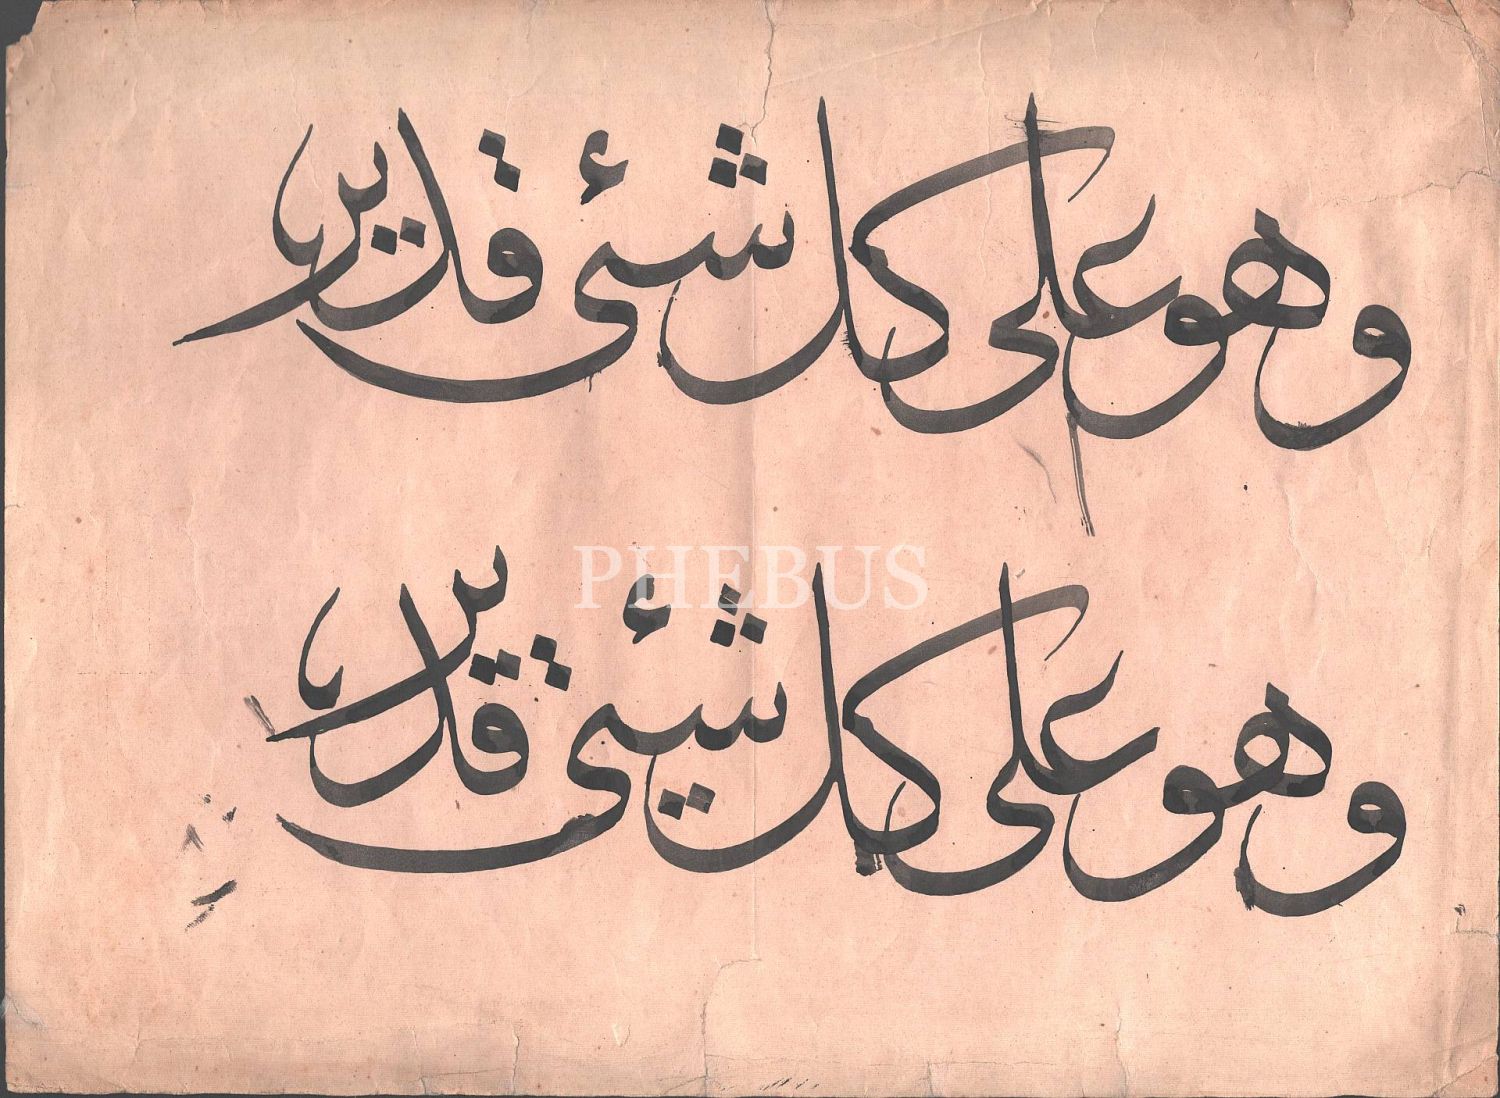 وهو على كل شئ قدير
PHEBUS
وهو على كل شيئ قدير